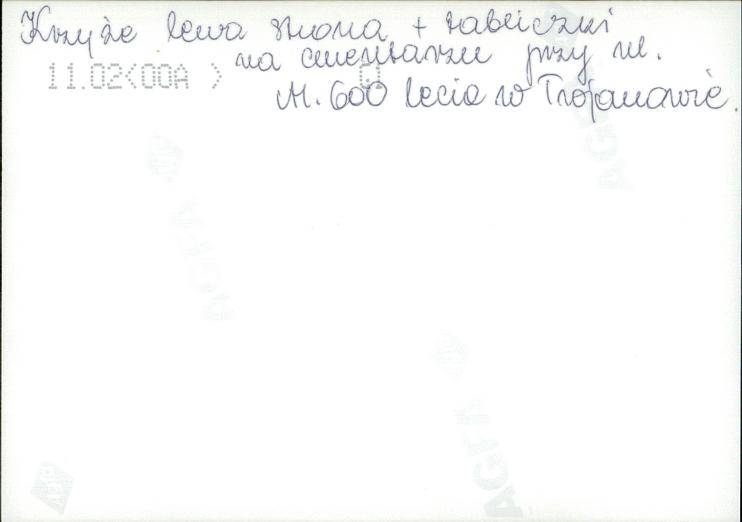 Krzyże lewa strona + tabliczki
na cmentarzu przy ul.
11.02<00A >
M. 600 lecia w Trojanowie.
AGFA
AGFA
AGFA
AGFA